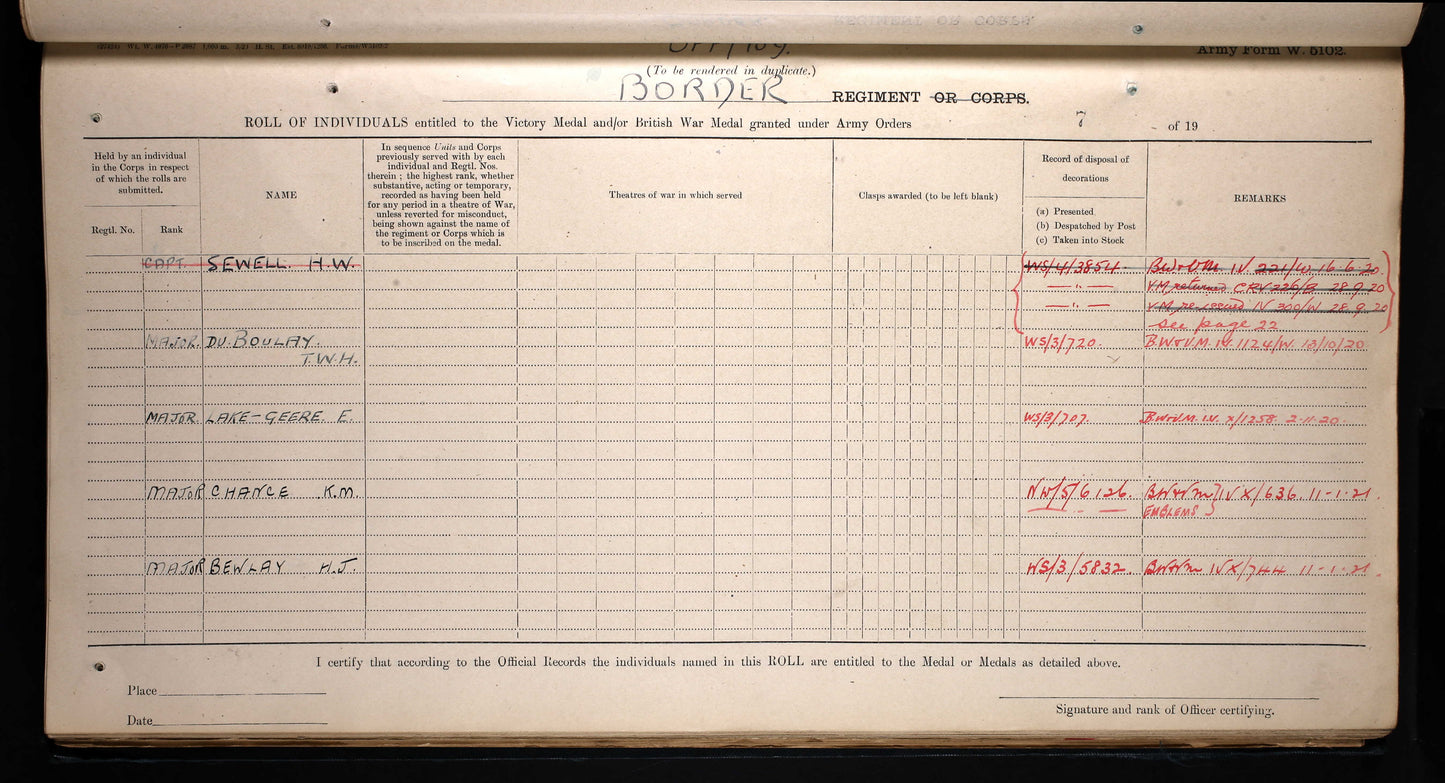 REGIMENT OR CORPS
OFF/109.
Army Form W. 5102.
(To be rendered in duplicate.)
BORDER REGIMENT OR CORPS.
ROLL OF INDIVIDUALS entitled to the Victory Medal and/or British War Medal granted under Army Orders 7 of 19
Held by an individual
in the Corps in respect
of which the rolls are
submitted.
Regtl. No.
Rank
NAME
In sequence Units and Corps
previously served with by each
individual and Regtl. Nos.
therein ; the highest rank, whether
substantive, acting or temporary,
recorded as having been held
for any period in a theatre of War,
unless reverted for misconduct,
being shown against the name of
the regiment or Corps which is
to be inscribed on the medal.
Theatres of war in which served
Clasps awarded (to be left blank)
Record of disposal of
decorations
(a) Presented
(b) Despatched by Post
(c) Taken into Stock
REMARKS
CAPT. SEWELL. H.W. WS/4/3854. BW&VM IV 221/W 16.6.20.
— " — VM returned CRV 226/B 28.9.20
— " — VM re-issued IV 300/W 28.9.20
see page 22
MAJOR. DU. BOULAY. WS/3/720. BW&V.M. IV. 1124/W. 13/10/20
T.W.H.
MAJOR. LAKE-GEERE. E. WS/3/707. BW&V.M. I.V. X/1258. 2.11.20.
MAJOR CHANCE K.M. NW/5/6126. BW&VM } IV X/636. 11-1-21.
— .. — EMBLEMS }
MAJOR BEWLAY H.J. WS/3/5832. BW&VM IV X/744 11-1-21.
I certify that according to the Official Records the individuals named in this ROLL are entitled to the Medal or Medals as detailed above.
Place
Date
Signature and rank of Officer certifying.